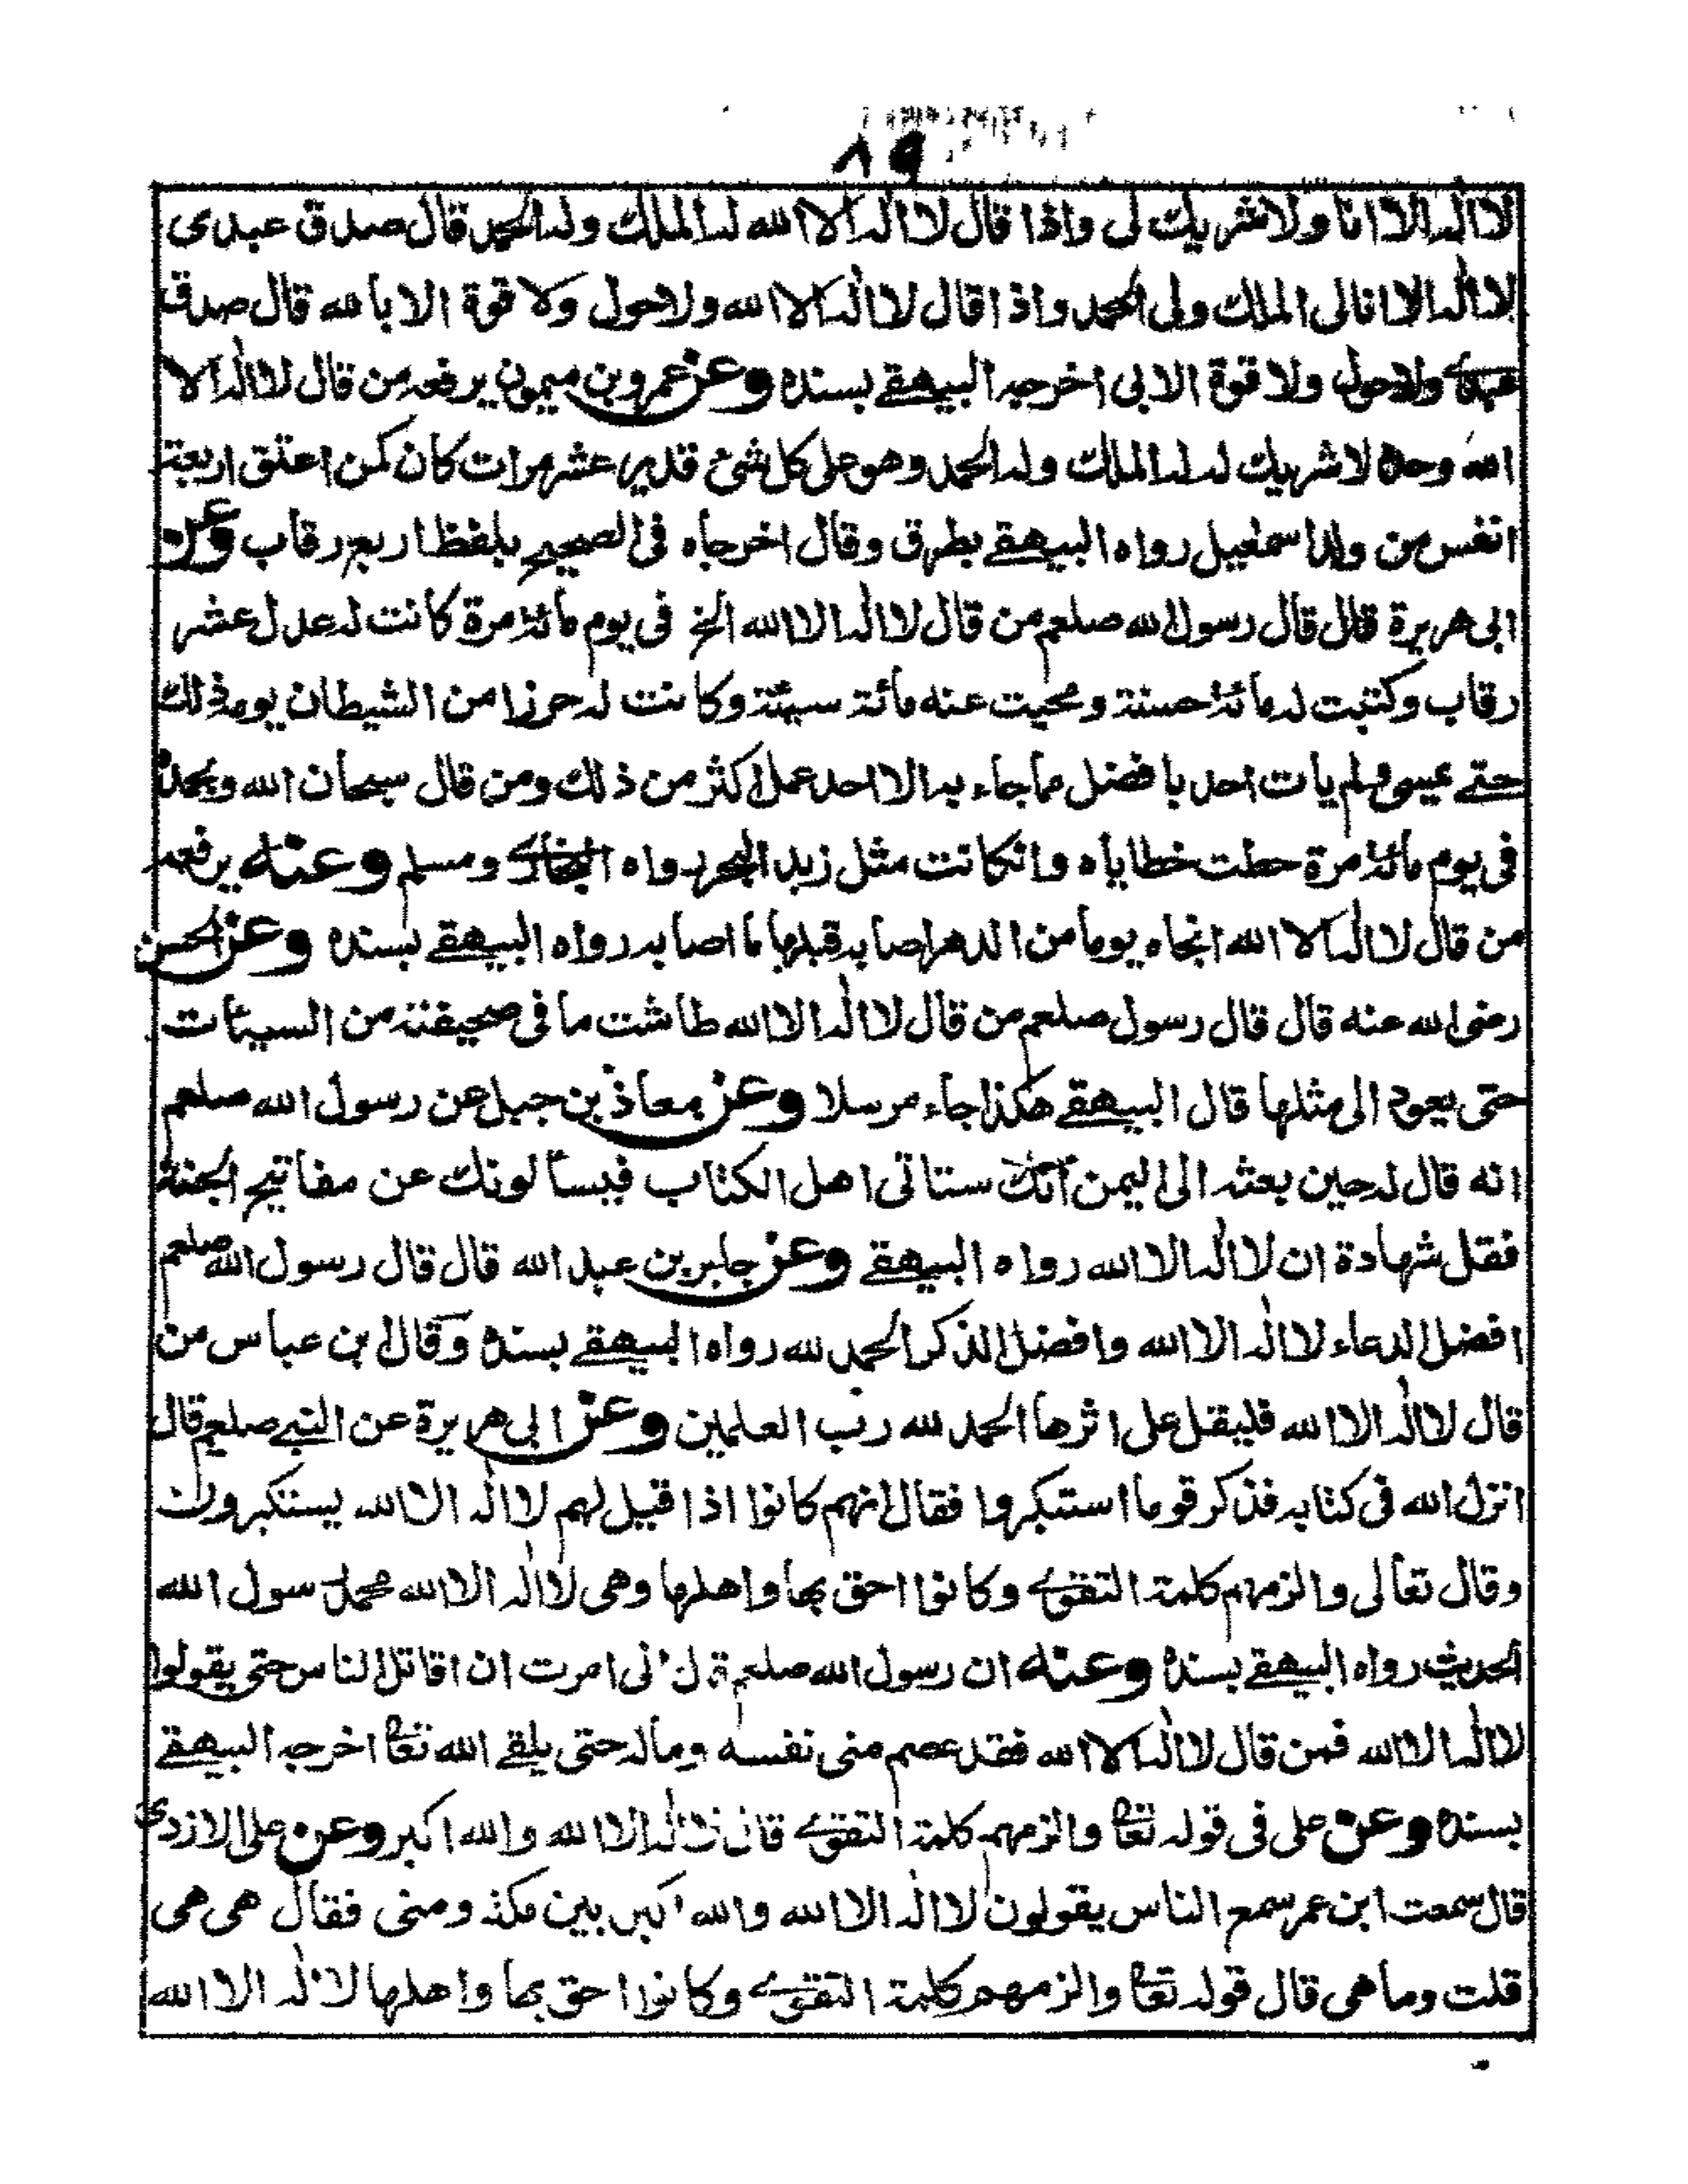 ٨٩
لا اله الا انا ولا شريك لى واذا قال لا اله الا الله له الملك وله الحمد قال صدق عبدى
لا اله الا انا لى الملك ولى الحمد واذا قال لا اله الا الله ولا حول ولا قوة الا بالله قال صدق
عبدى ولا حول ولا قوة الا بى اخرجه البيهقے بسنده وعن عمرو بن ميمون يرفعه من قال لا اله الا
الله وحده لا شريك له له الملك وله الحمد وهو على كل شئ قدير عشر مرات كان كمن اعتق اربعة
انفس من ولد اسمعيل رواه البيهقے بطرق وقال اخرجاه فى الصحيح بلفظ اربع رقاب وعن
ابى هريرة قال قال رسول الله صلعم من قال لا اله الا الله الخ فى يوم مائة مرة كانت له عدل عشر
رقاب وكتبت له مائة حسنة ومحيت عنه مائة سيئة وكانت له حرزا من الشيطان يومه ذلك
حتے يمسى ولم يات احد بافضل مما جاء به الا احد عمل اكثر من ذلك ومن قال سبحان الله وبحمده
فى يوم مائة مرة حطت خطاياه وان كانت مثل زبد البحر رواه البخارى ومسلم وعنه يرفعه
من قال لا اله الا الله انجاه يوما من الدهر اصابه قبلها ما اصابه رواه البيهقے بسنده وعن الحسن
رضى الله عنه قال قال رسول صلعم من قال لا اله الا الله طاشت ما فى صحيفته من السيئات
حتى يعود الى مثلها قال البيهقے هكذا جاء مرسلا وعن معاذ بن جبل عن رسول الله صلعم
انه قال له حين بعثه الى اليمن انك ستاتى اهل الكتاب فيسألونك عن مفاتيح الجنة
فقل شهادة ان لا اله الا الله رواه البيهقے وعن جابر بن عبد الله قال قال رسول الله صلعم
افضل الدعاء لا اله الا الله وافضل الذكر الحمد لله رواه البيهقے بسنده وقال ابن عباس من
قال لا اله الا الله فليقل على اثرها الحمد لله رب العلمين وعن ابى هريرة عن النبے صلعم قال
انزل الله فى كتابه فذكر قوما استكبروا فقال انهم كانوا اذا قيل لهم لا اله الا الله يستكبرون
وقال تعالى والزمهم كلمة التقوے وكانوا احق بها واهلها وهى لا اله الا الله محمد رسول الله
الحديث رواه البيهقے بسنده وعنه ان رسول الله صلعم قال انى امرت ان اقاتل الناس حتى يقولوا
لا اله الا الله فمن قال لا اله الا الله فقد عصم منى نفسه وماله حتى يلقے الله تعا اخرجه البيهقے
بسنده وعن على فى قوله تعا والزمهم كلمة التقوے قال لا اله الا الله والله اكبر وعن على الازدى
قال سمعت ابن عمر سمع الناس يقولون لا اله الا الله والله اكبر بين مكة ومنى فقال هى هى
قلت وما هى قال قوله تعا والزمهم كلمة التقوے وكانوا احق بها واهلها لا اله الا الله